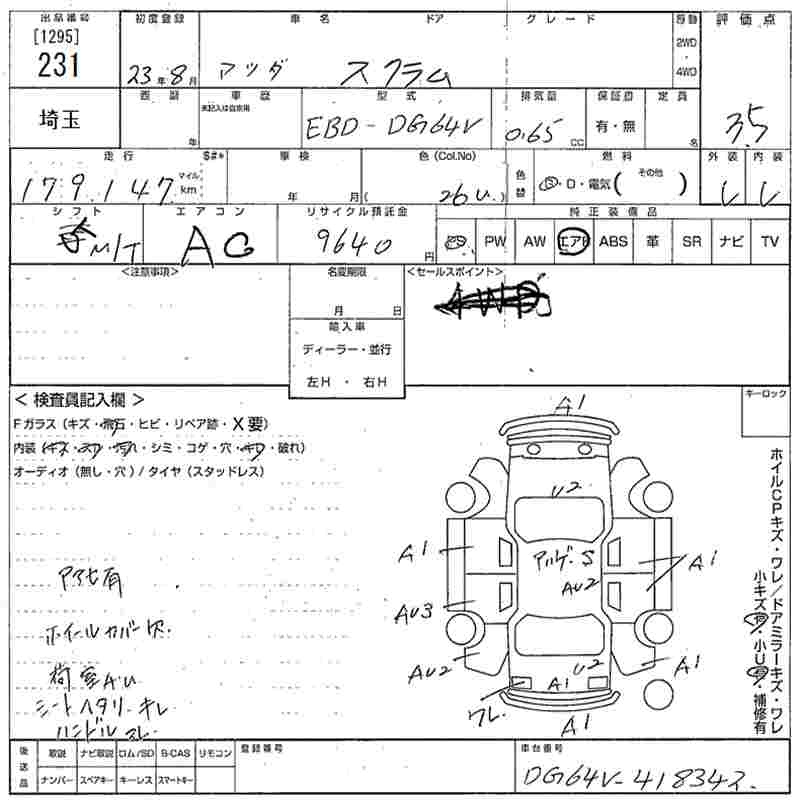 出品番号 初度登録 車名 ドア グレード 駆動 評価点
[1295]
231 23年8月 マツダ スクラム 2WD・4WD 3.5
埼玉 西暦 年 車歴 未記入は自家用 型式 EBD-DG64V 排気量 0.65 CC 保証書 有・無 定員 名
走行 $#* 車検 色(Col.No) 色替 燃料 外装 内装
179,147 マイル km 年 月 ( 26U ) G・D・電気( その他 ) レ レ
シフト エアコン リサイクル預託金 純正装備品
M/T AC 9640円 PS PW AW エアB ABS 革 SR ナビ TV
<注意事項> 名変期限 <セールスポイント>
月 日 4WD
輸入車
ディーラー・並行
左H・右H
<検査員記入欄> キーロック
Fガラス(キズ・飛石・ヒビ・リペア跡・X要)
内装(キズ・スリ・汚れ・シミ・コゲ・穴・キリ・破れ)
オーディオ(無し・穴)/タイヤ(スタッドレス)
有
ホイールカバー欠
荷室AU
シートヘタリ・キレ
ハンドルスレ
A1
U2
A1 S A1
AU2
AU3
AU2 U2 A1
ワレ A1
A1
ホイルCPキズ・ワレ/ドアミラーキズ・ワレ
小キズ有・小U有・補修有
後送品 取説 ナビ取説 ロム/SD B-CAS リモコン 登録番号 車台番号
ナンバー スペアキー キーレス スマートキー DG64V-418342